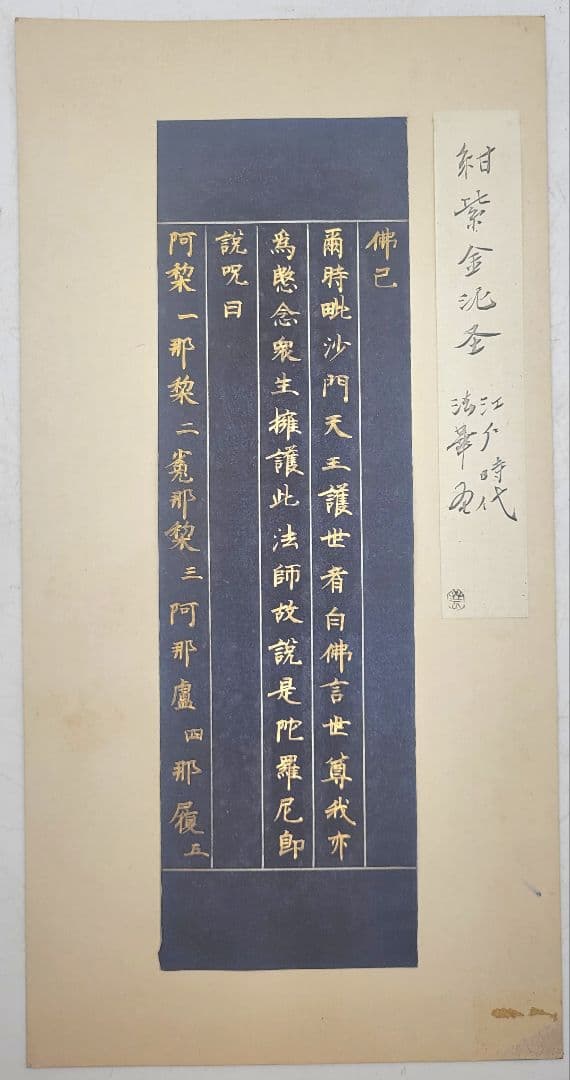 紺紫金泥圣
江戸時代
法華
佛已
爾時毗沙門天王護世者白佛言世尊我亦
爲慜念衆生擁護此法師故說是陀羅尼即
說呪曰
阿棃一那棃二㝹那棃三阿那盧四那履五